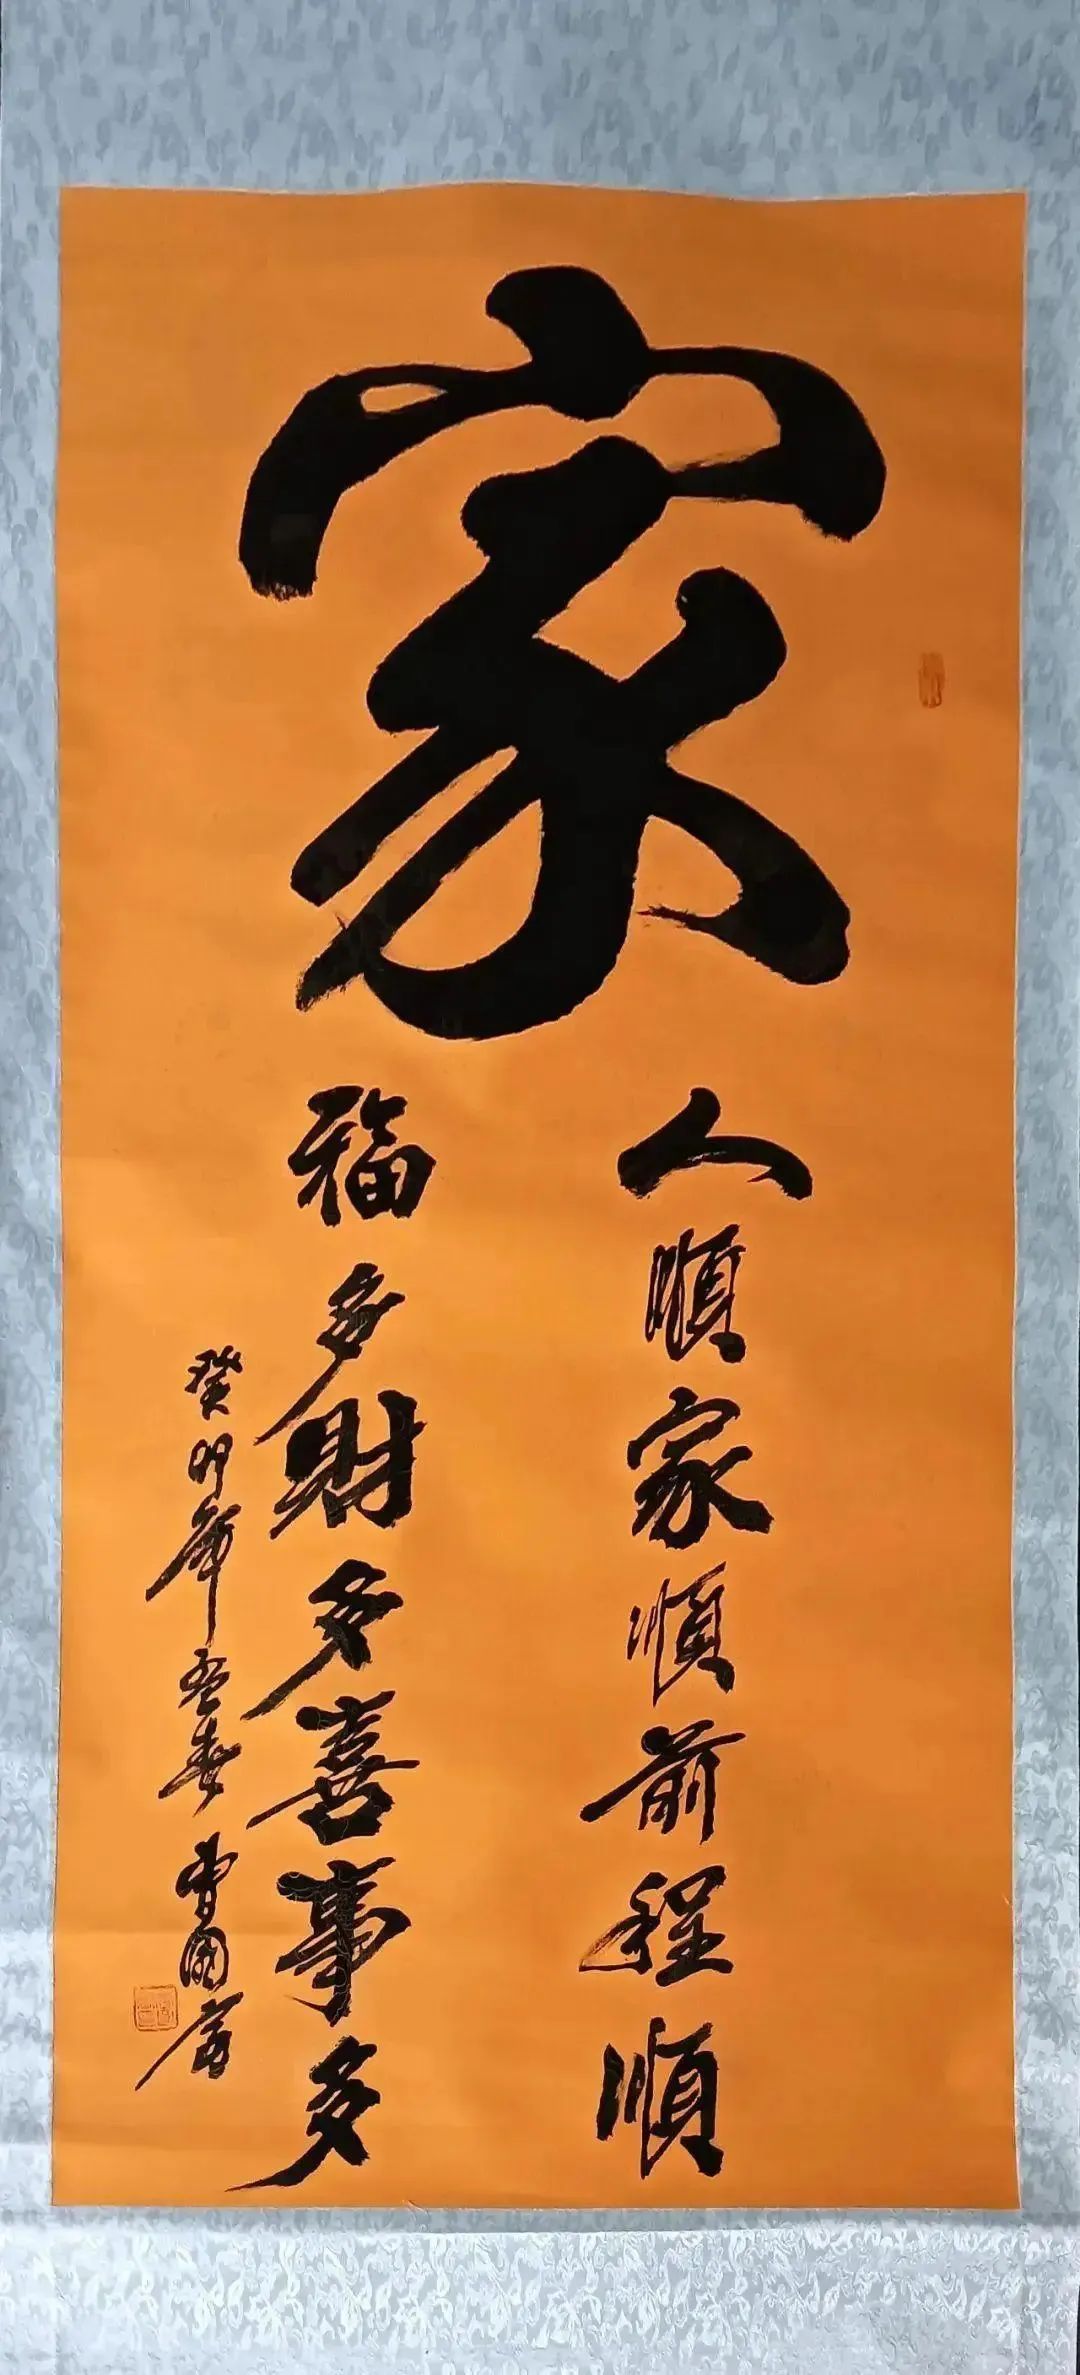 家
人順家順前程順
福多財多喜事多
癸卯年孟春 曹國富